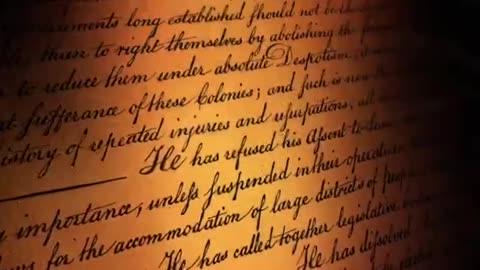 long established ſhould not be
to right themselves by abolishing the
to reduce them under absolute Despotism, it
ſufferance of these Colonies; and ſuch is now the
history of repeated injuries and usurpations, all
He has refused his Aſsent to
importance, unleſs ſuspended in their operation
for the accommodation of large districts of
He has called together legislative
He has diſsolved